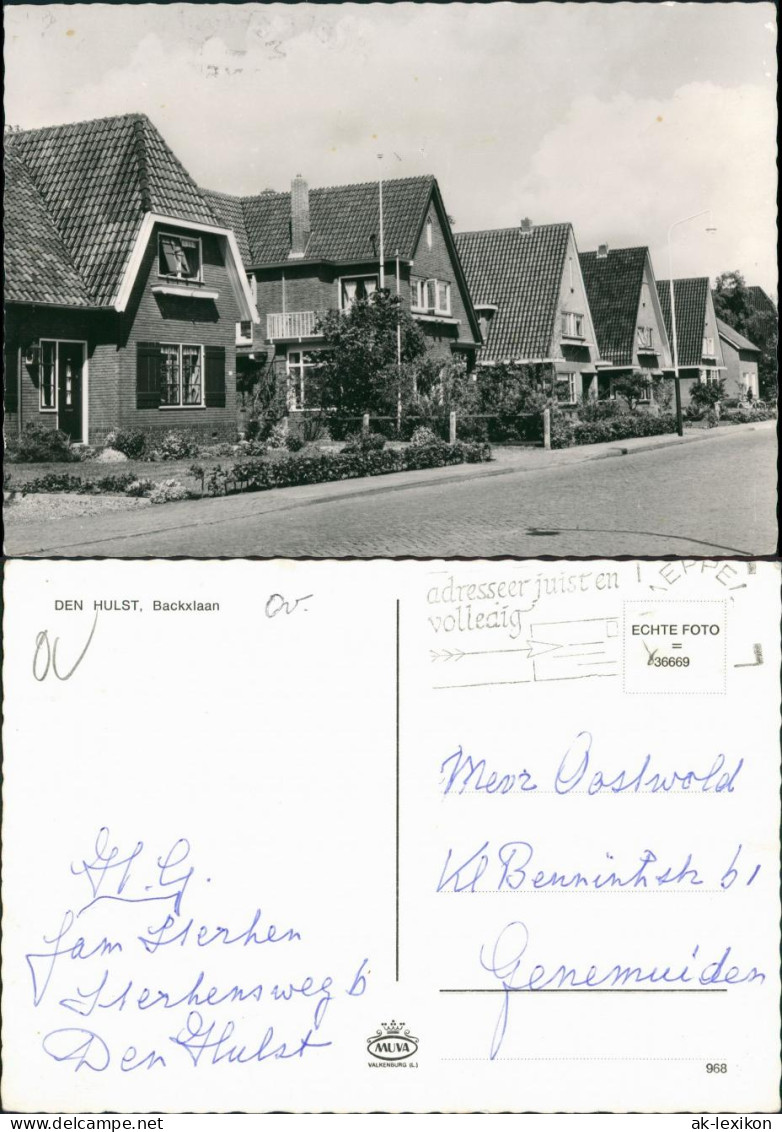 DEN HULST, Backxlaan
ov.
ov
adresseer juist en
volledig
MEPPEL
ECHTE FOTO
=
36669
Mevr Oostwold
Kl Bennink str b1
Genemuiden
H.G.
fam Sterken
Sterkensweg 6
Den Hulst
MUVA
VALKENBURG (L.)
968
ak-lexikon